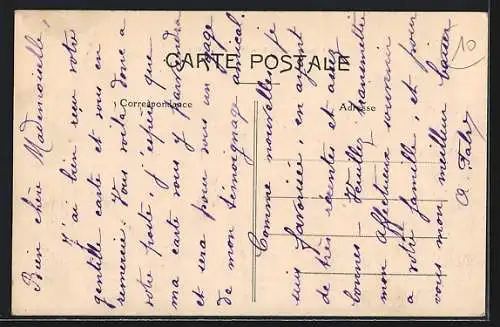 CARTE POSTALE
Correspondance
Adresse
10
Bien chère Mademoiselle,
J'ai bien reçu votre
gentille carte et vous en
remercie. Vous voilà donc à
votre poste, j'espère que
ma carte vous y parviendra
et sera pour vous un gage
de mon témoignage amical.
Comme nouvelles je
suis favorisée, en ayant
de très récentes et assez
bonnes. Veuillez transmettre
mon affectueux souvenir
à votre famille, et pour
vous mon meilleur baiser
A. Fabry